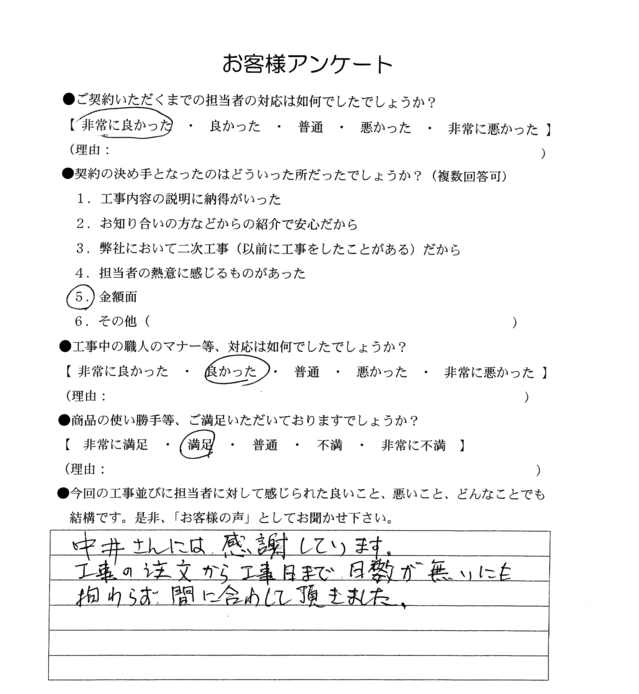 お客様アンケート
●ご契約いただくまでの担当者の対応は如何でしたでしょうか?
【 非常に良かった ・ 良かった ・ 普通 ・ 悪かった ・ 非常に悪かった 】
(理由: )
●契約の決め手となったのはどういった所だったでしょうか?(複数回答可)
1.工事内容の説明に納得がいった
2.お知り合いの方などからの紹介で安心だから
3.弊社において二次工事(以前に工事をしたことがある)だから
4.担当者の熱意に感じるものがあった
5.金額面
6.その他( )
●工事中の職人のマナー等、対応は如何でしたでしょうか?
【 非常に良かった ・ 良かった ・ 普通 ・ 悪かった ・ 非常に悪かった 】
(理由: )
●商品の使い勝手等、ご満足いただいておりますでしょうか?
【 非常に満足 ・ 満足 ・ 普通 ・ 不満 ・ 非常に不満 】
(理由: )
●今回の工事並びに担当者に対して感じられた良いこと、悪いこと、どんなことでも
結構です。是非、「お客様の声」としてお聞かせ下さい。
中井さんには、感謝しています。
工事の注文から工事日まで日数が無いにも
拘わらず間に合わして頂きました。